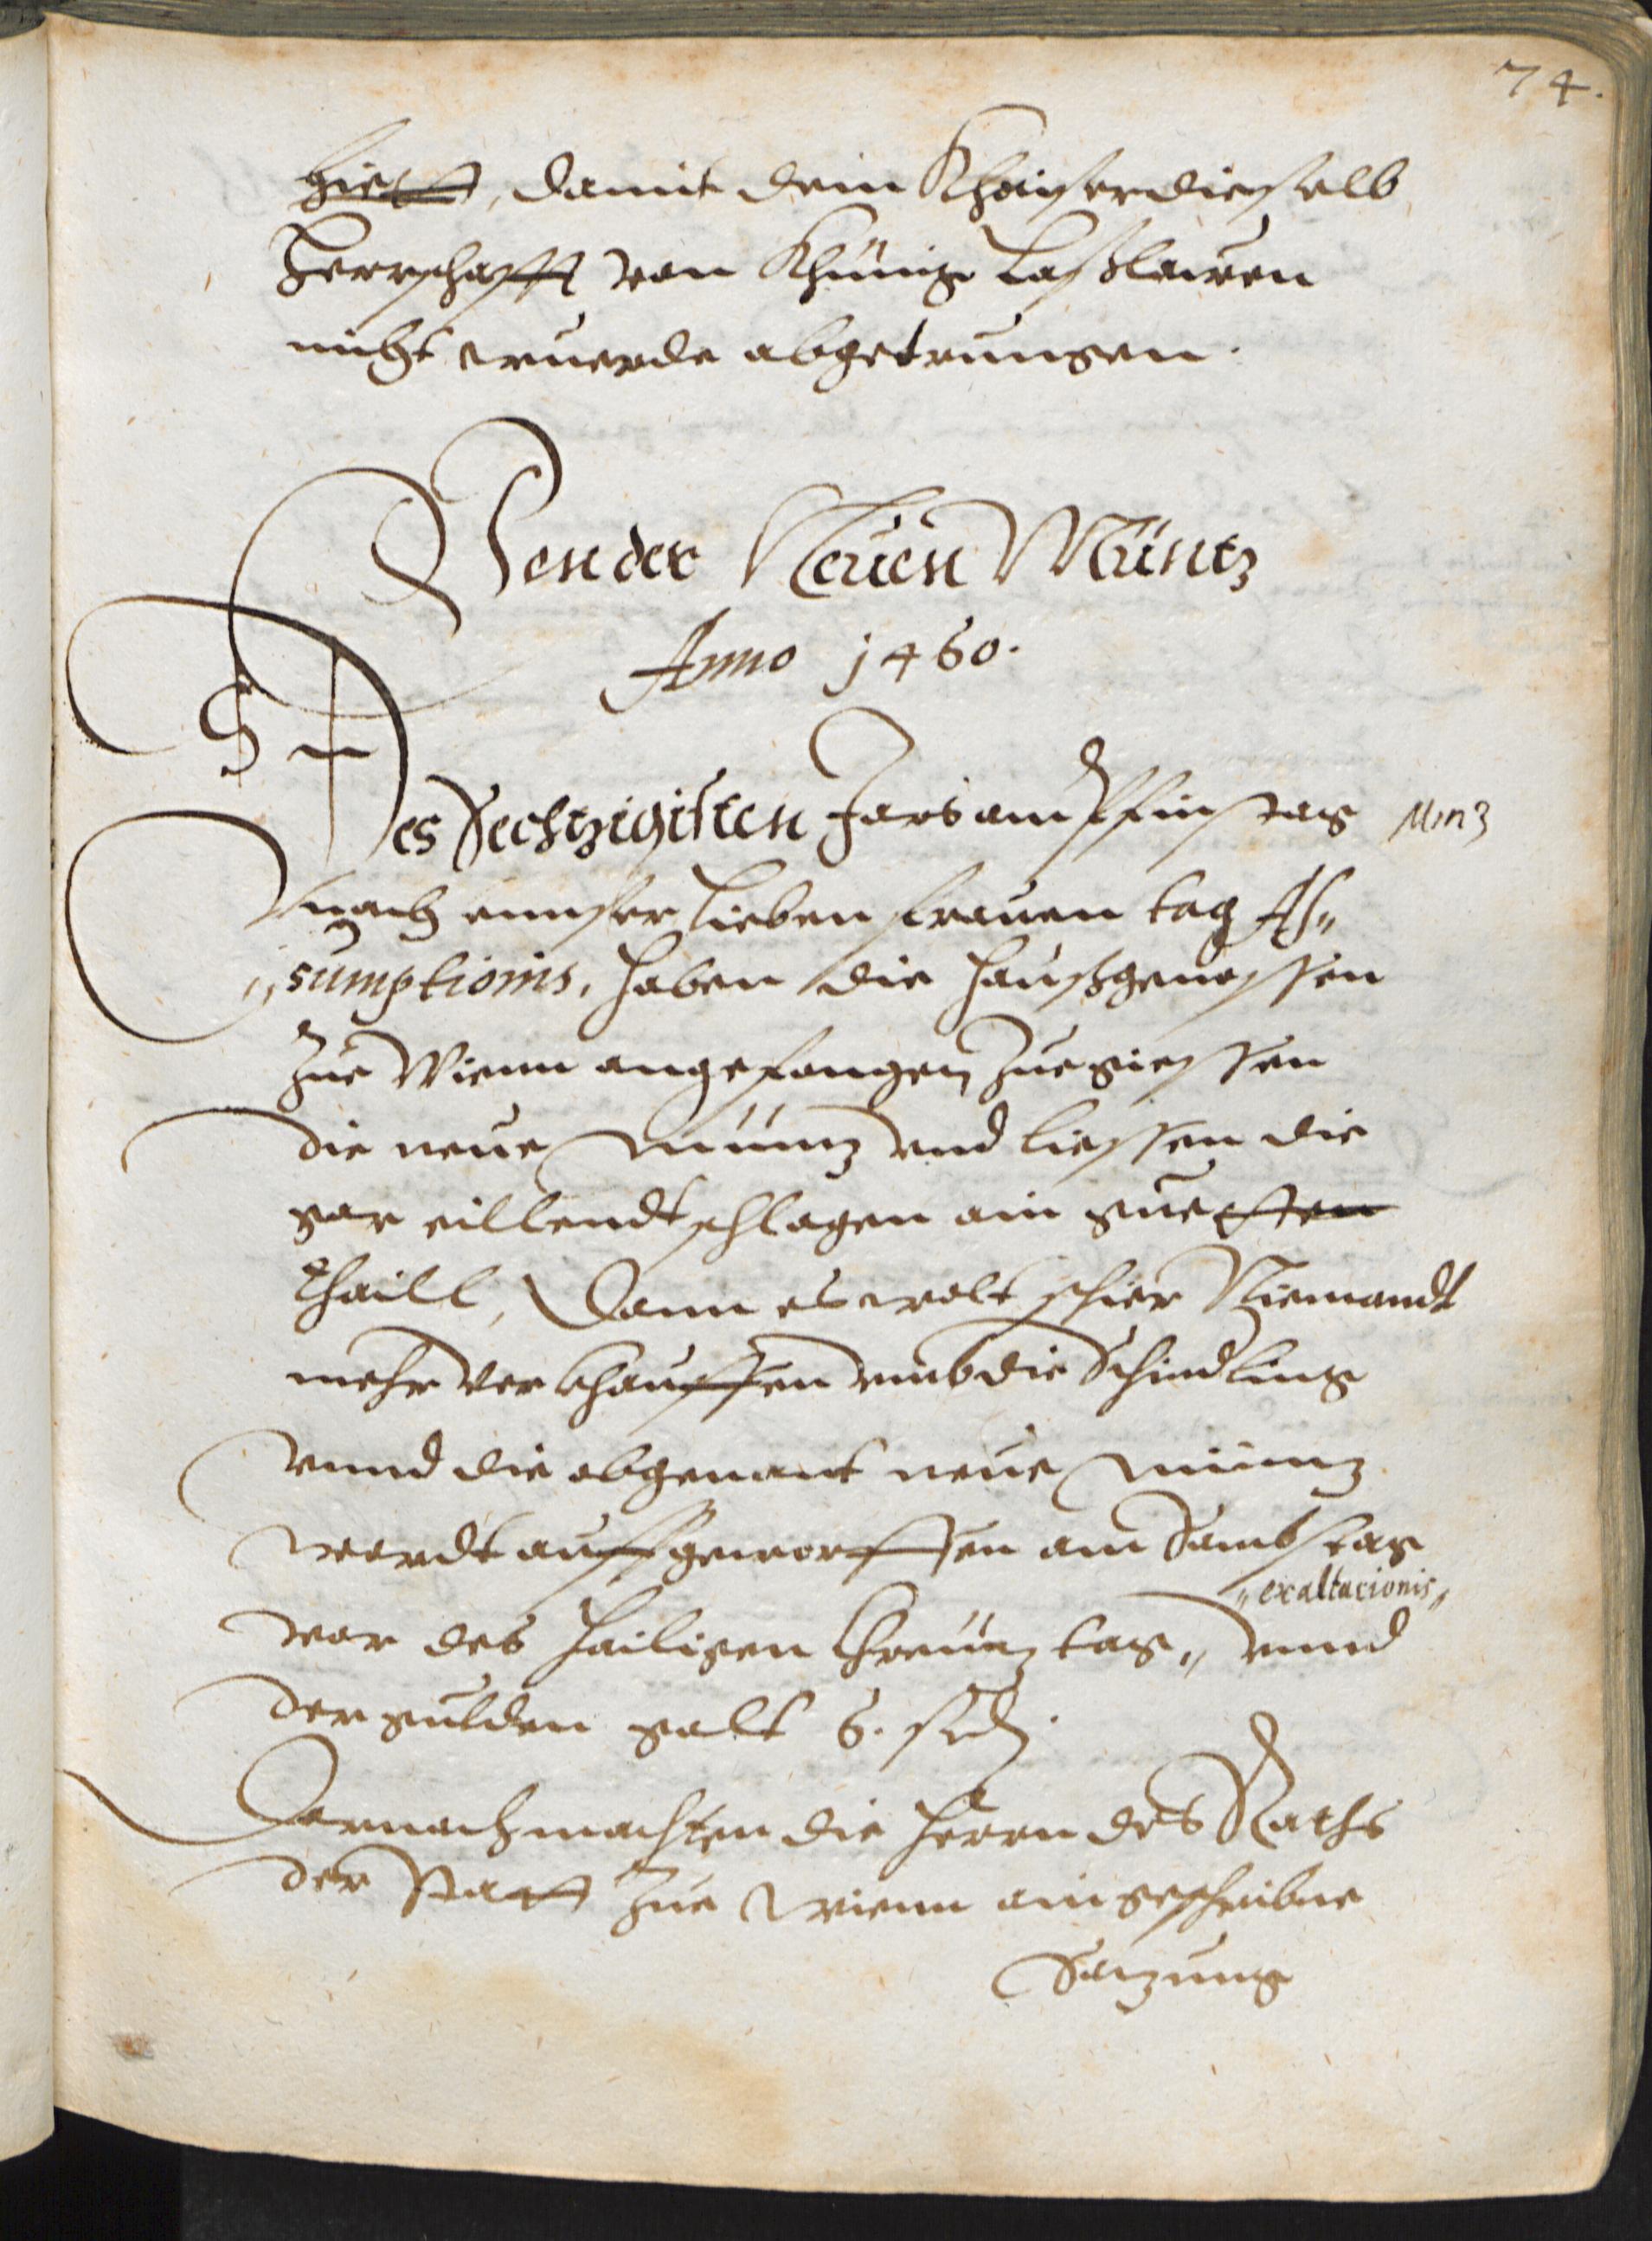 74.
hielt, damit dem Khaiser dieselb
Herrschafft von Khünig Laßlawen
nicht wuerde abgetrungen.
Von der Neüen Müntz
Anno 1460.
Des Sechtzigisten Jars am Pfinstag
Minz
nach unnser Lieben frauen tag As„
„sumptionis, haben die Haußgenossen
zue Wienn angefangen zue giessen
die neue Münz und liessen die
gar eillendt schlagen ain gueten
thaill, Dann es wolt schier Niemandt
mehr verkhauffen umb die Schindling
unnd die obgenant neue Münz
wardt auffgeworffen am Sambstag
„exaltacionis„
vor des Heiligen Chreüz tag„ unnd
der gulden galt 6. ß d.
Darnach machten die Herrn des Raths
der Statt zue Wienn ain geschribne
Sazung